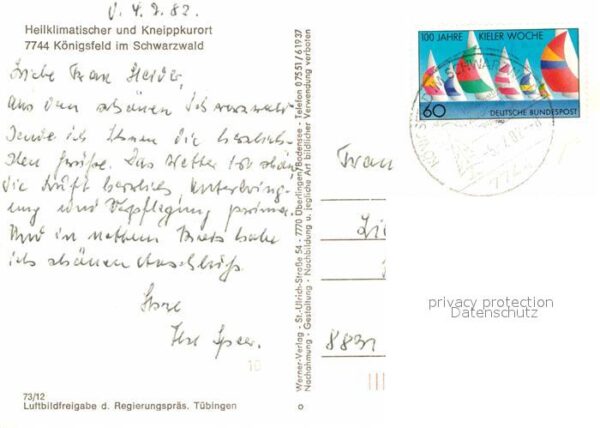 Heilklimatischer und Kneippkurort
7744 Königsfeld im Schwarzwald
Liebe Frau
Aus dem schönen Schwarzwald
sende ich Ihnen die herzlich-
sten Grüße. Das Wetter ist schön
die Luft herrlich, Unterbring-
ung und Verpflegung prima.
Und in nettem Kreis habe
ich schönen Anschluß.
Ihre
73/12
Luftbildfreigabe d. Regierungspräs. Tübingen
Werner-Verlag - St.-Ulrich-Straße 54 - 7770 Überlingen/Bodensee - Telefon 07551/61937
Nachahmung - Gestaltung - Nachbildung u. jegliche Art bildlicher Verwendung verboten
100 JAHRE KIELER WOCHE
60 DEUTSCHE BUNDESPOST
Frau
privacy protection
Datenschutz